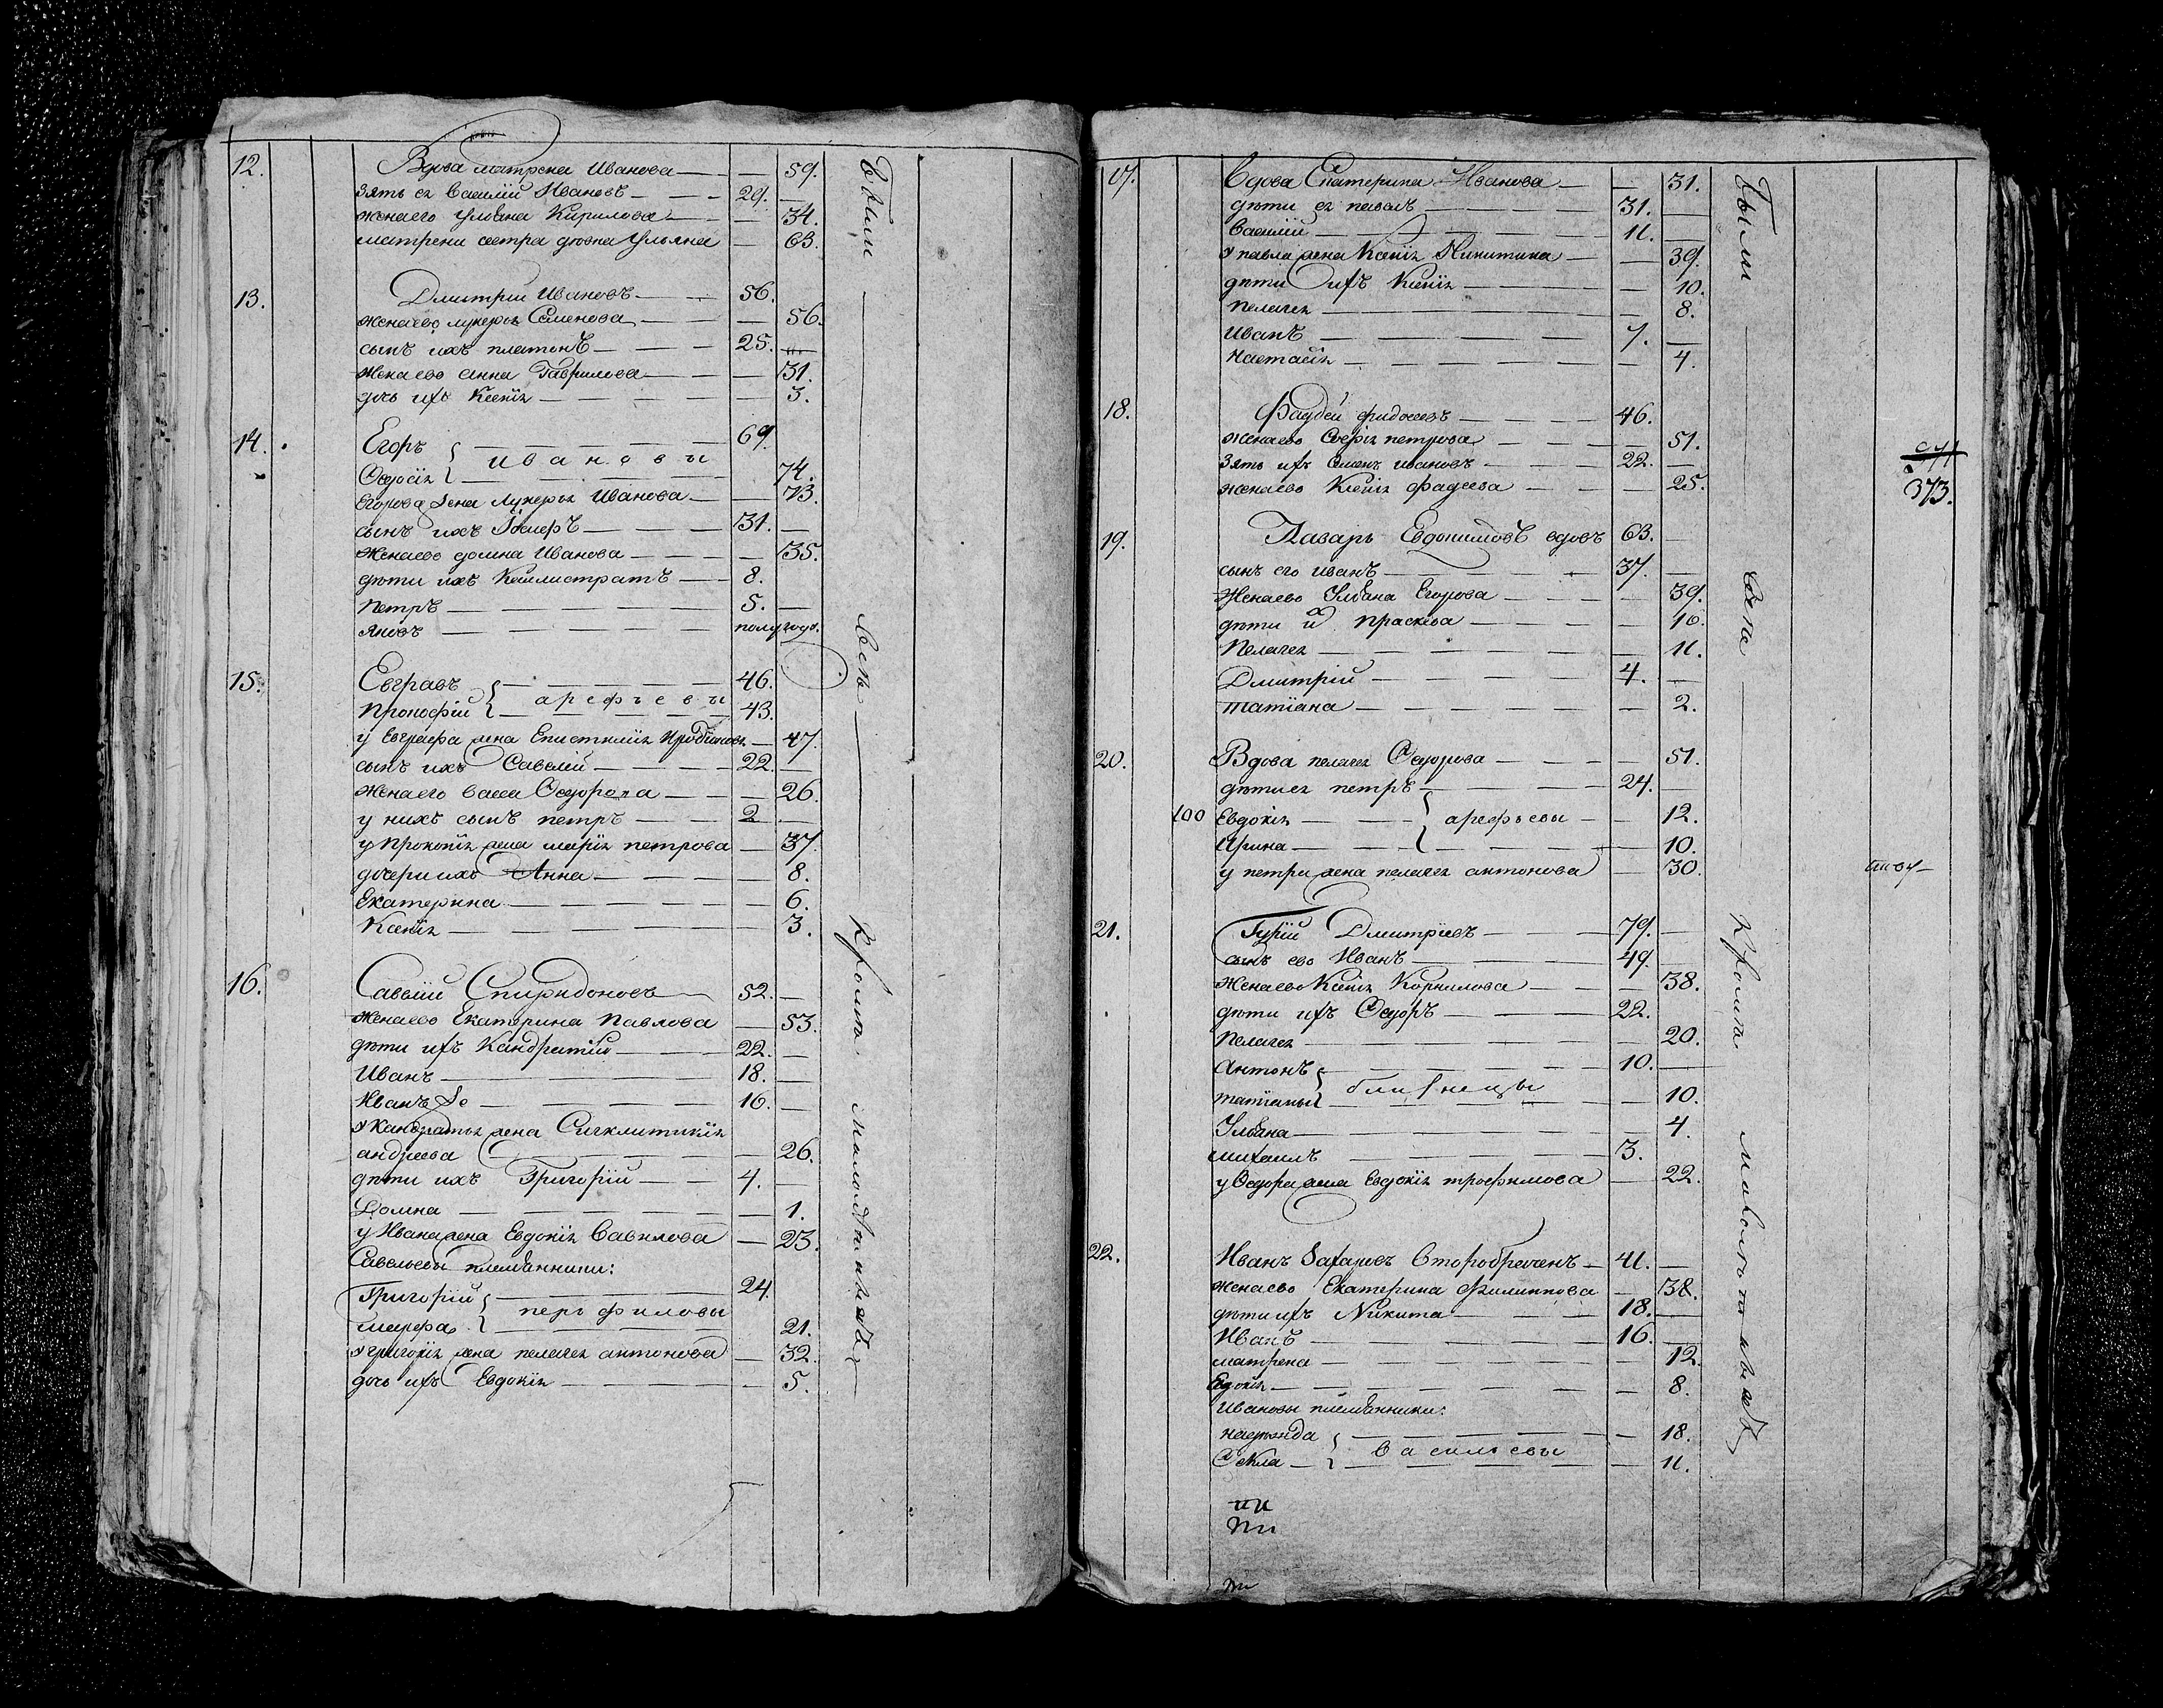 12. Вдова матрена Иванова — — 59.
зять ея Василiй Ивановъ — 29. —
жена его Ульяна Кирилова — — 34.
матрени сестра девка Ульяна — 63.
13. Дмитрiй Ивановъ — 56.
жена ево лукерья Семенова — — 56.
сынъ ихъ платонъ — 25. —
жена ево анна Гаврилова — — 31.
дочь ихъ Ксенiя — — 3.
14. Егоръ — 69.
ивановы
Федосiя — 74.
Егорова жена лукерья Иванова — — 73.
сынъ ихъ Иосифъ — 31. —
жена ево домна Иванова — — 35.
дѣти ихъ Каллистратъ — 8.
петръ — 5. —
яковъ — полугода.
15. Евграѳъ — 46.
арефьевы
Прокофiй — 43.
у Евграфа жена Епистимiя — 47.
сынъ ихъ Савелiй — 22. —
жена его васса Федорова — — 26.
у нихъ сынъ петръ — 2 —
у Прокопiя жена марiя петрова — 37.
дочери ихъ Анна — — 8.
Екатерина — — 6.
Ксенiя — — 3.
16. Савелiй Спиридоновъ — 52. —
жена ево Екатерина Павлова — 53.
дѣти ихъ Кандратiй — 22. —
Иванъ — 18. —
Иванъ же — 16. —
у Кандратья жена Сигклитикiя
андреева — — 26.
дѣти ихъ Григорiй — 4. —
Домна — — 1.
у Ивана жена Евдокiя Савилова — 23.
Савельевы племянники:
Григорiй — 24.
перфиловы
марфа — 21.
у григорiя жена пелагея антонова — 32.
дочь ихъ Евдокiя — — 5.
Были — Всѣ — Кромѣ малолѣтныхъ
17. Вдова Екатерина Иванова — — 31.
дѣти ея павелъ — 31. —
Василiй — 11. —
у павла жена Ксенiя Никитина — — 39.
дѣти ихъ Ксенiя — — 10.
пелагея — — 8.
Иванъ — 7. —
настасiя — — 4.
18. Фаддей — 46.
жена ево Софiя петрова — — 51.
зять ихъ Семенъ ивановъ — 22. —
жена ево Ксенiя фадеева — — 25.
373.
19. Лазарь Евдокимовъ вдовъ 63. —
сынъ его иванъ — 37. —
жена ево Ульяна Егорова — — 39.
дѣти их праскева — — 16.
Пелагея — — 11.
Дмитрiй — 4. —
татiана — — 2.
20. Вдова пелагея Федорова — — 51.
дѣти ея петръ — 24. —
100 Евдокiя — арефьевы — 12.
Ирина — — 10.
у петра жена пелагея антонова — 30.
21. Гурiй Дмитрiевъ — 79. —
сынъ ево Иванъ — 49. —
жена ево Ксенiя Корнилова — — 38.
дѣти ихъ Федоръ — 22.
пелагея — — 20.
антонъ — 10. —
близнецы
татiана — — 10.
Ульяна — — 4.
михаилъ — 3.
у Федора жена Евдокiя трофимова — 22.
22. Иванъ Захаровъ Второбраченъ — 41. —
жена ево Екатерина Филиппова — 38.
дѣти ихъ Никита — 18. —
Иванъ — 16. —
матрена — — 12.
Евдокiя — — 8.
Ивановы племянники:
надежда — — 18.
васильевы
Фекла — — 11.
Были — Всѣ — Кромѣ малолѣтныхъ